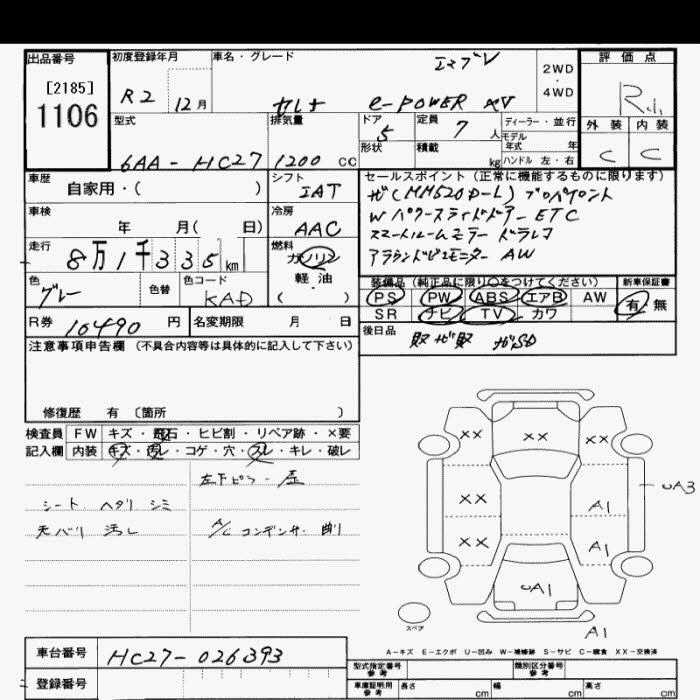 出品番号
[2185]
1106
初度登録年月
R2 12月
車名・グレード
セレナ e-POWER XV
2WD
・
4WD
評価点
R
外装 内装
C C
型式
6AA-HC27
排気量
1200 cc
ドア
5
形状
定員
7 人
積載
kg
ディーラー・並行
モデル
年式 年
ハンドル 左・右
車歴
自家用・( )
シフト
IAT
車検
年 月( 日)
冷房
AAC
走行
8万1千335km
燃料
ガソリン
軽・油
( )
色
グレー
色替
色コード
KAD
R券 10490 円
名変期限 月 日
セールスポイント(正常に機能するものに限ります)
ナビ(MM520D-L) プロパイロット
Wパワースライドドアー ETC
スマートルームミラー ドラレコ
アラウンドビューモニター AW
装備品(純正品に限り○をつけてください)
PS PW ABS エアB AW
SR ナビ TV カワ
新車保証書
有 無
後日品
注意事項申告欄 (不具合内容等は具体的に記入して下さい)
修復歴 有 (箇所 )
検査員 FW キズ・飛石・ヒビ割・リペア跡・×要
記入欄 内装 キズ・汚レ・コゲ・穴・スレ・キレ・破レ
シート ヘタリ シミ
天バリ 汚レ
A/C コンデンサー
XX XX XX
XX
XX
A1
A1
UA3
UA1
A1
スペア
A-キズ E-エクボ U-凹み W-補修跡 S-サビ C-腐食 XX-交換済
車台番号 HC27-026393
登録番号
型式指定番号
参考
類別区分番号
参考
車庫証明用
参考
長さ cm 幅 cm 高さ cm